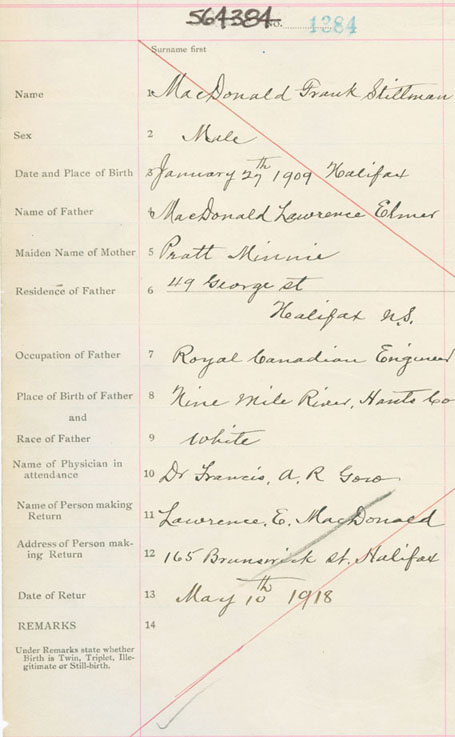 564384 No. 1384
Surname first
Name 1 MacDonald Frank Stillman
Sex 2 Male
Date and Place of Birth 3 January 27th 1909 Halifax
Name of Father 4 MacDonald Lawrence Elmer
Maiden Name of Mother 5 Pratt Minnie
Residence of Father 6 49 George st
Halifax N.S.
Occupation of Father 7 Royal Canadian Engineer
Place of Birth of Father 8 Nine Mile River, Hants Co
and
Race of Father 9 White
Name of Physician in
attendance 10 Dr Francis, A, R Gow
Name of Person making
Return 11 Lawrence, E. MacDonald
Address of Person mak-
ing Return 12 165 Brunswick st, Halifax
Date of Retur 13 May 10th 1918
REMARKS 14
Under Remarks state whether
Birth is Twin, Triplet, Ille-
gitimate or Still-birth.